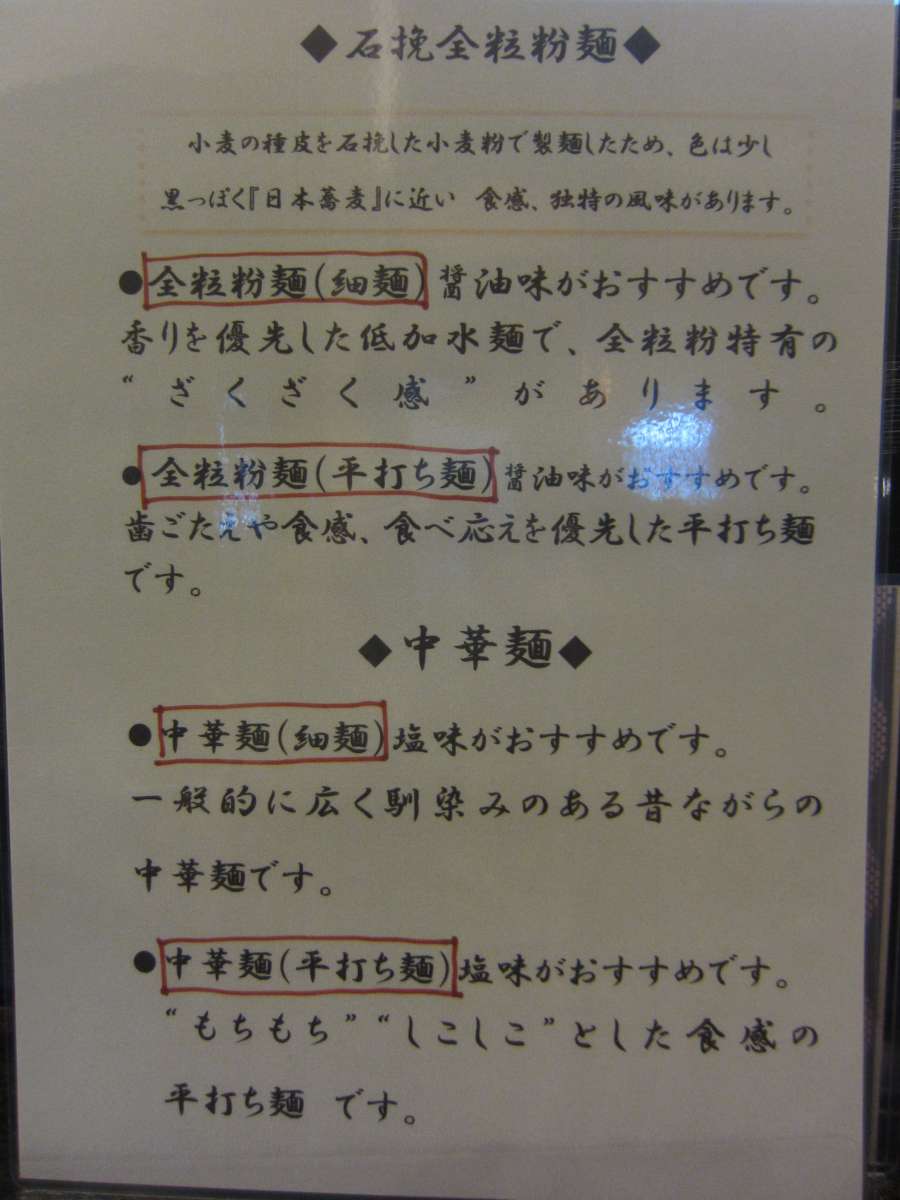 ◆石挽全粒粉麺◆
小麦の種皮を石挽した小麦粉で製麺したため、色は少し
黒っぽく『日本蕎麦』に近い 食感、独特の風味があります。
●全粒粉麺(細麺)醤油味がおすすめです。
香りを優先した低加水麺で、全粒粉特有の
“ざくざく感”があります。
●全粒粉麺(平打ち麺)醤油味がおすすめです。
歯ごたえや食感、食べ応えを優先した平打ち麺
です。
◆中華麺◆
●中華麺(細麺)塩味がおすすめです。
一般的に広く馴染みのある昔ながらの
中華麺です。
●中華麺(平打ち麺)塩味がおすすめです。
“もちもち”“しこしこ”とした食感の
平打ち麺 です。